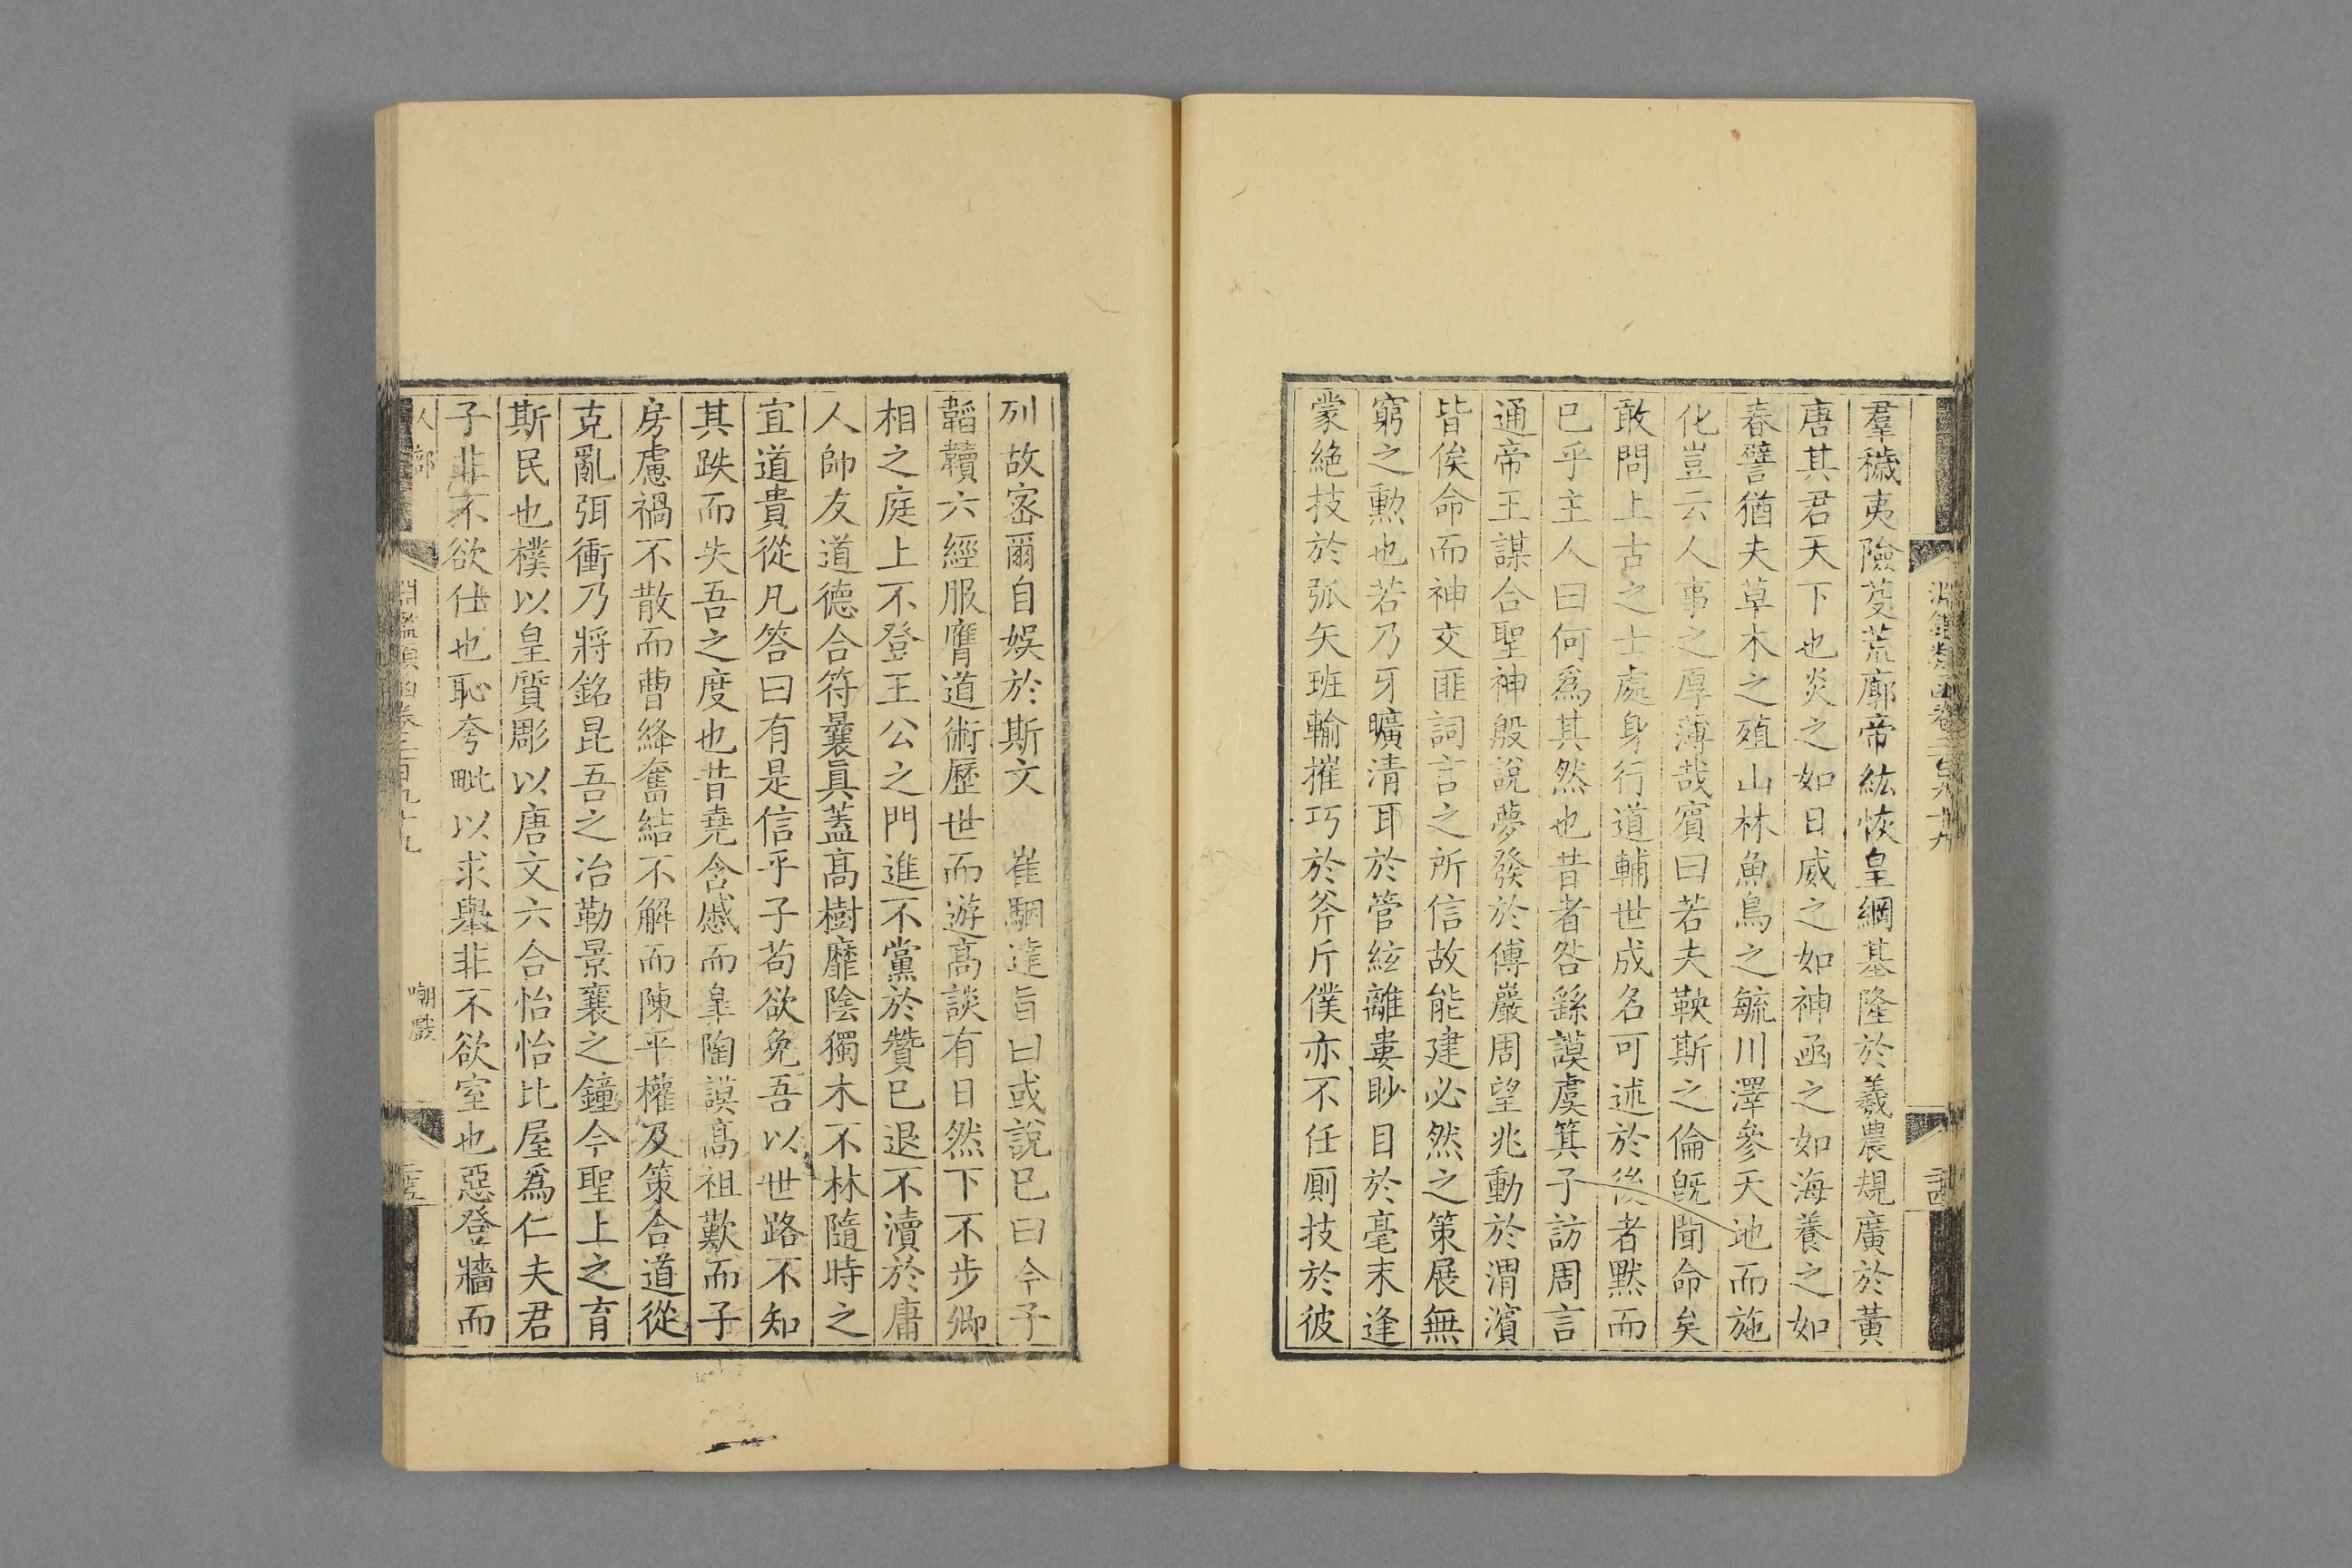 羣穢夷險芟荒廓帝紘恢皇綱基隆於羲農規廣於黃
唐其君天下也炎之如日威之如神函之如海養之如
春譬猶夫草木之殖山林魚鳥之毓川澤參天地而施
化豈云人事之厚薄哉賓曰若夫鞅斯之倫旣聞命矣
敢問上古之士處身行道輔世成名可述於後者默而
已乎主人曰何爲其然也昔者咎繇謨虞箕子訪周言
通帝王謀合聖神殷說夢發於傅巖周望兆動於渭濱
皆俟命而神交匪詞言之所信故能建必然之策展無
窮之勲也若乃牙曠清耳於管絃離婁眇目於毫末逢
蒙絶技於弧矢班輸摧巧於斧斤僕亦不任厠技於彼
列故密爾自娛於斯文 崔駰達旨曰或說巳曰今子
韜韥六經服膺道術歷世而遊高談有日然下不步卿
相之庭上不登王公之門進不黨於贊巳退不瀆於庸
人帥友道德合符曩眞蓋高樹靡陰獨木不林隨時之
宜道貴從凡答曰有是信乎子苟欲免吾以世路不知
其跌而失吾之度也昔堯含慼而臯陶謨高祖歎而子
房慮禍不散而曹絳奮結不解而陳平權及策合道從
克亂弭衝乃將銘昆吾之冶勒景襄之鐘今聖上之育
斯民也樸以皇質彫以唐文六合怡怡比屋爲仁夫君
子非不欲仕也恥夸毗以求舉非不欲室也惡登牆而
人部 淵鑑類函卷三百九十九 嘲戲